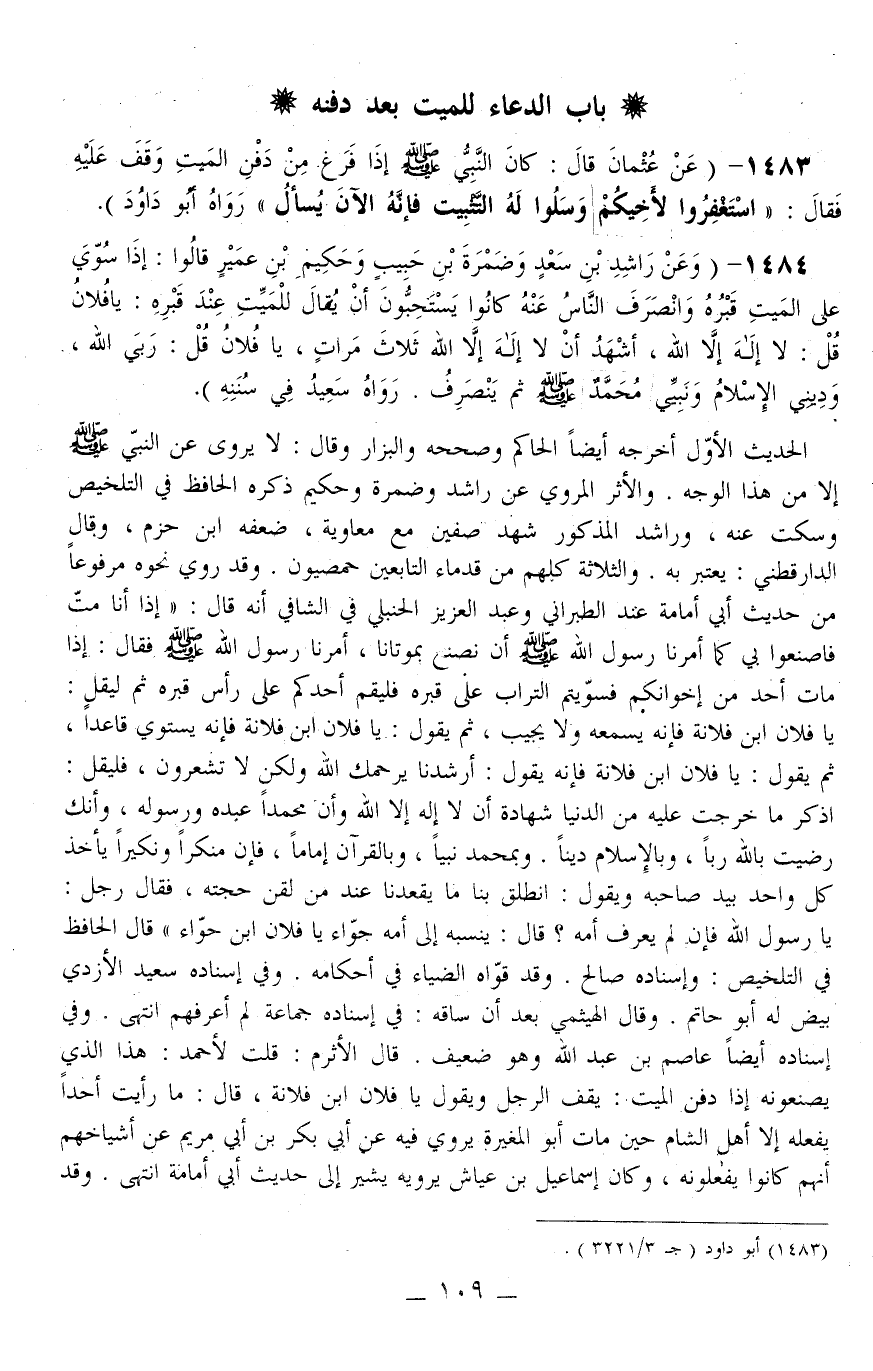 ❋ باب الدعاء للميت بعد دفنه ❋
١٤٨٣- ( عَنْ عُثْمانَ قالَ : كانَ النَّبِيُّ ﷺ إذَا فَرَغَ مِنْ دَفْنِ المَيتِ وَقَفَ عَلَيْهِ
فَقالَ : « اسْتَغْفِرُوا لأَخِيكُمْ وَسَلُوا لَهُ التَّثْبِيت فَإنَّهُ الآنَ يُسألُ » رَوَاهُ أبُو دَاوُدَ ).
١٤٨٤- ( وَعَنْ رَاشِدِ بْنِ سَعْدٍ وَضَمْرَةَ بْنِ حَبِيبٍ وَحَكِيمِ بْنِ عميْرٍ قالُوا : إذَا سُوّيَ
على المَيتِ قَبْرُهُ وَانْصَرَفَ النَّاسُ عَنْهُ كانُوا يَسْتَحِبُّونَ أنْ يُقالَ لِلْمَيِّتِ عِنْدَ قَبْرِهِ : يافُلانُ
قُلْ : لا إلَـٰهَ إلَّا الله ، أشْهَدُ أنْ لا إلَـٰهَ إلَّا الله ثَلاثَ مَراتٍ ، يا فُلانُ قُلْ : رَبيَ الله ،
وَدِينِي الإسْلامُ وَنَبِيِّي مُحَمَّدٌ ﷺ ثم يَنْصَرِفُ . رَوَاهُ سَعِيدُ فِي سُنَنِهِ ).
الحديث الأوّل أخرجه أيضاً الحاكم وصححه والبزار وقال : لا يروى عن النبيّ ﷺ
إلا من هذا الوجه . والأثر المروي عن راشد وضمرة وحكيم ذكره الحافظ في التلخيص
وسكت عنه ، وراشد المذكور شهد صفين مع معاوية ، ضعفه ابن حزم ، وقال
الدارقطني : يعتبر به . والثلاثة كلهم من قدماء التابعين حمصيون . وقد روي نحوه مرفوعاً
من حديث أبي أمامة عند الطبراني وعبد العزيز الحنبلي في الشافي أنه قال : « إذا أنا متّ
فاصنعوا بي كما أمرنا رسول الله ﷺ أن نصنع بموتانا ، أمرنا رسول الله ﷺ فقال : إذا
مات أحد من إخوانكم فسوّيتم التراب على قبره فليقم أحدكم على رأس قبره ثم ليقل :
يا فلان ابن فلانة فإنه يسمعه ولا يجيب ، ثم يقول : يا فلان ابن فلانة فإنه يستوي قاعداً ،
ثم يقول : يا فلان ابن فلانة فإنه يقول : أرشدنا يرحمك الله ولكن لا تشعرون ، فليقل :
اذكر ما خرجت عليه من الدنيا شهادة أن لا إله إلا الله وأن محمداً عبده ورسوله ، وأنك
رضيت بالله رباً ، وبالإسلام ديناً . وبمحمد نبياً ، وبالقرآن إماماً ، فإن منكراً ونكيراً يأخذ
كل واحد بيد صاحبه ويقول : انطلق بنا ما يقعدنا عند من لقن حجته ، فقال رجل :
يا رسول الله فإن لم يعرف أمه ؟ قال : ينسبه إلى أمه حوّاء يا فلان ابن حوّاء » قال الحافظ
في التلخيص : وإسناده صالح . وقد قوّاه الضياء في أحكامه . وفي إسناده سعيد الأزدي
بيض له أبو حاتم . وقال الهيثمي بعد أن ساقه : في إسناده جماعة لم أعرفهم انتهى . وفي
إسناده أيضاً عاصم بن عبد الله وهو ضعيف . قال الأثرم : قلت لأحمد : هذا الذي
يصنعونه إذا دفن الميت : يقف الرجل ويقول يا فلان ابن فلانة ، قال : ما رأيت أحداً
يفعله إلا أهل الشام حين مات أبو المغيرة يروي فيه عن أبي بكر بن أبي مريم عن أشياخهم
أنهم كانوا يفعلونه ، وكان إسماعيل بن عياش يرويه يشير إلى حديث أبي أمامة انتهى . وقد
(١٤٨٣) أبو داود ( جـ ٣/ ٣٢٢١ ) .
_ ١٠٩ _